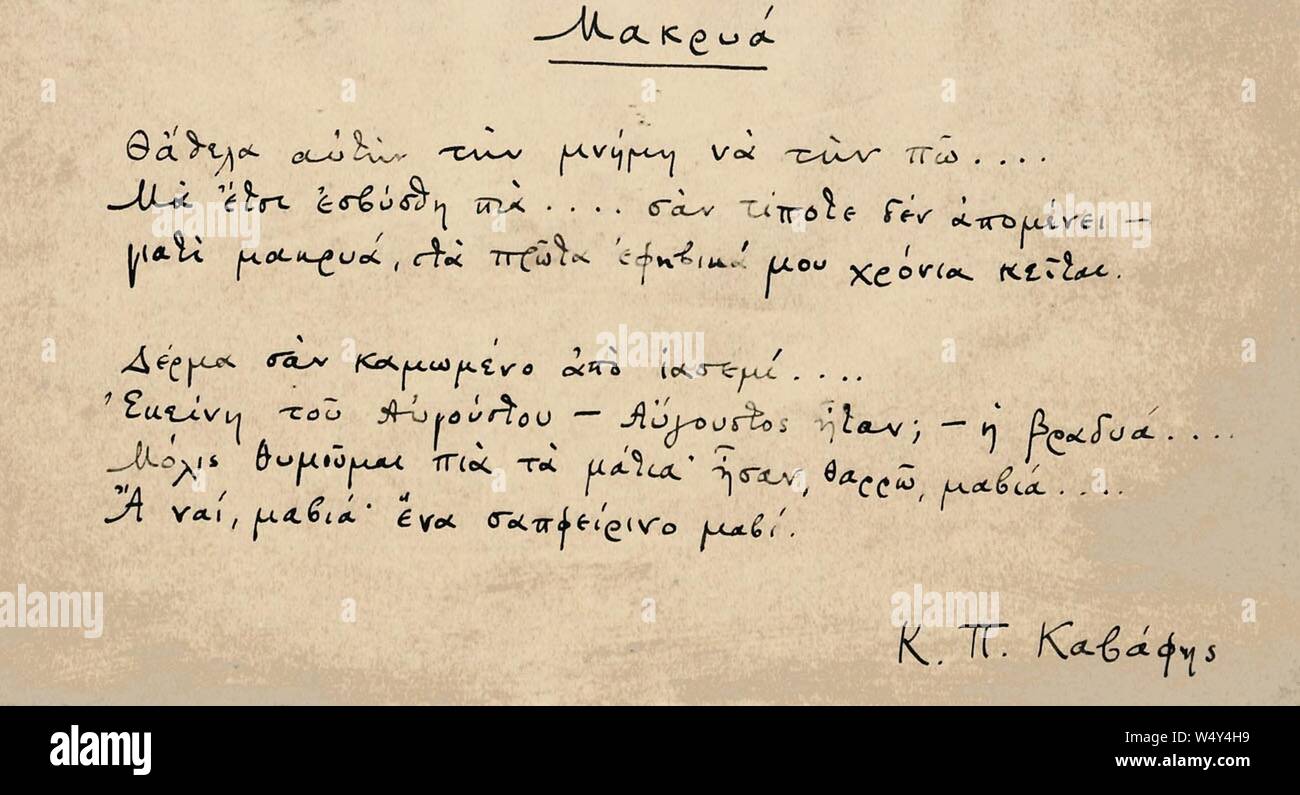 Μακρυά
Θἄθελα αὐτὴν τὴν μνήμη νὰ τὴν πῶ....
Μὰ ἔτσι ἐσβύσθη πιὰ.... σὰν τίποτε δὲν ἀπομένει —
γιατὶ μακρυά, στὰ πρῶτα ἐφηβικά μου χρόνια κεῖται.
Δέρμα σὰν καμωμένο ἀπὸ ἰασεμί....
Ἐκείνη τοῦ Αὐγούστου — Αὔγουστος ἦταν; — ἡ βραδυά....
Μόλις θυμοῦμαι πιὰ τὰ μάτια· ἦσαν, θαρρῶ, μαβιά....
Ἆ ναί, μαβιά· ἕνα σαπφείρινο μαβί.
Κ. Π. Καβάφης
alamy
alamy
alamy
a
a
a
a
a
a
a
a
a
a
a
alamy
alamy
alamy
Image ID: W4Y4H9
www.alamy.com